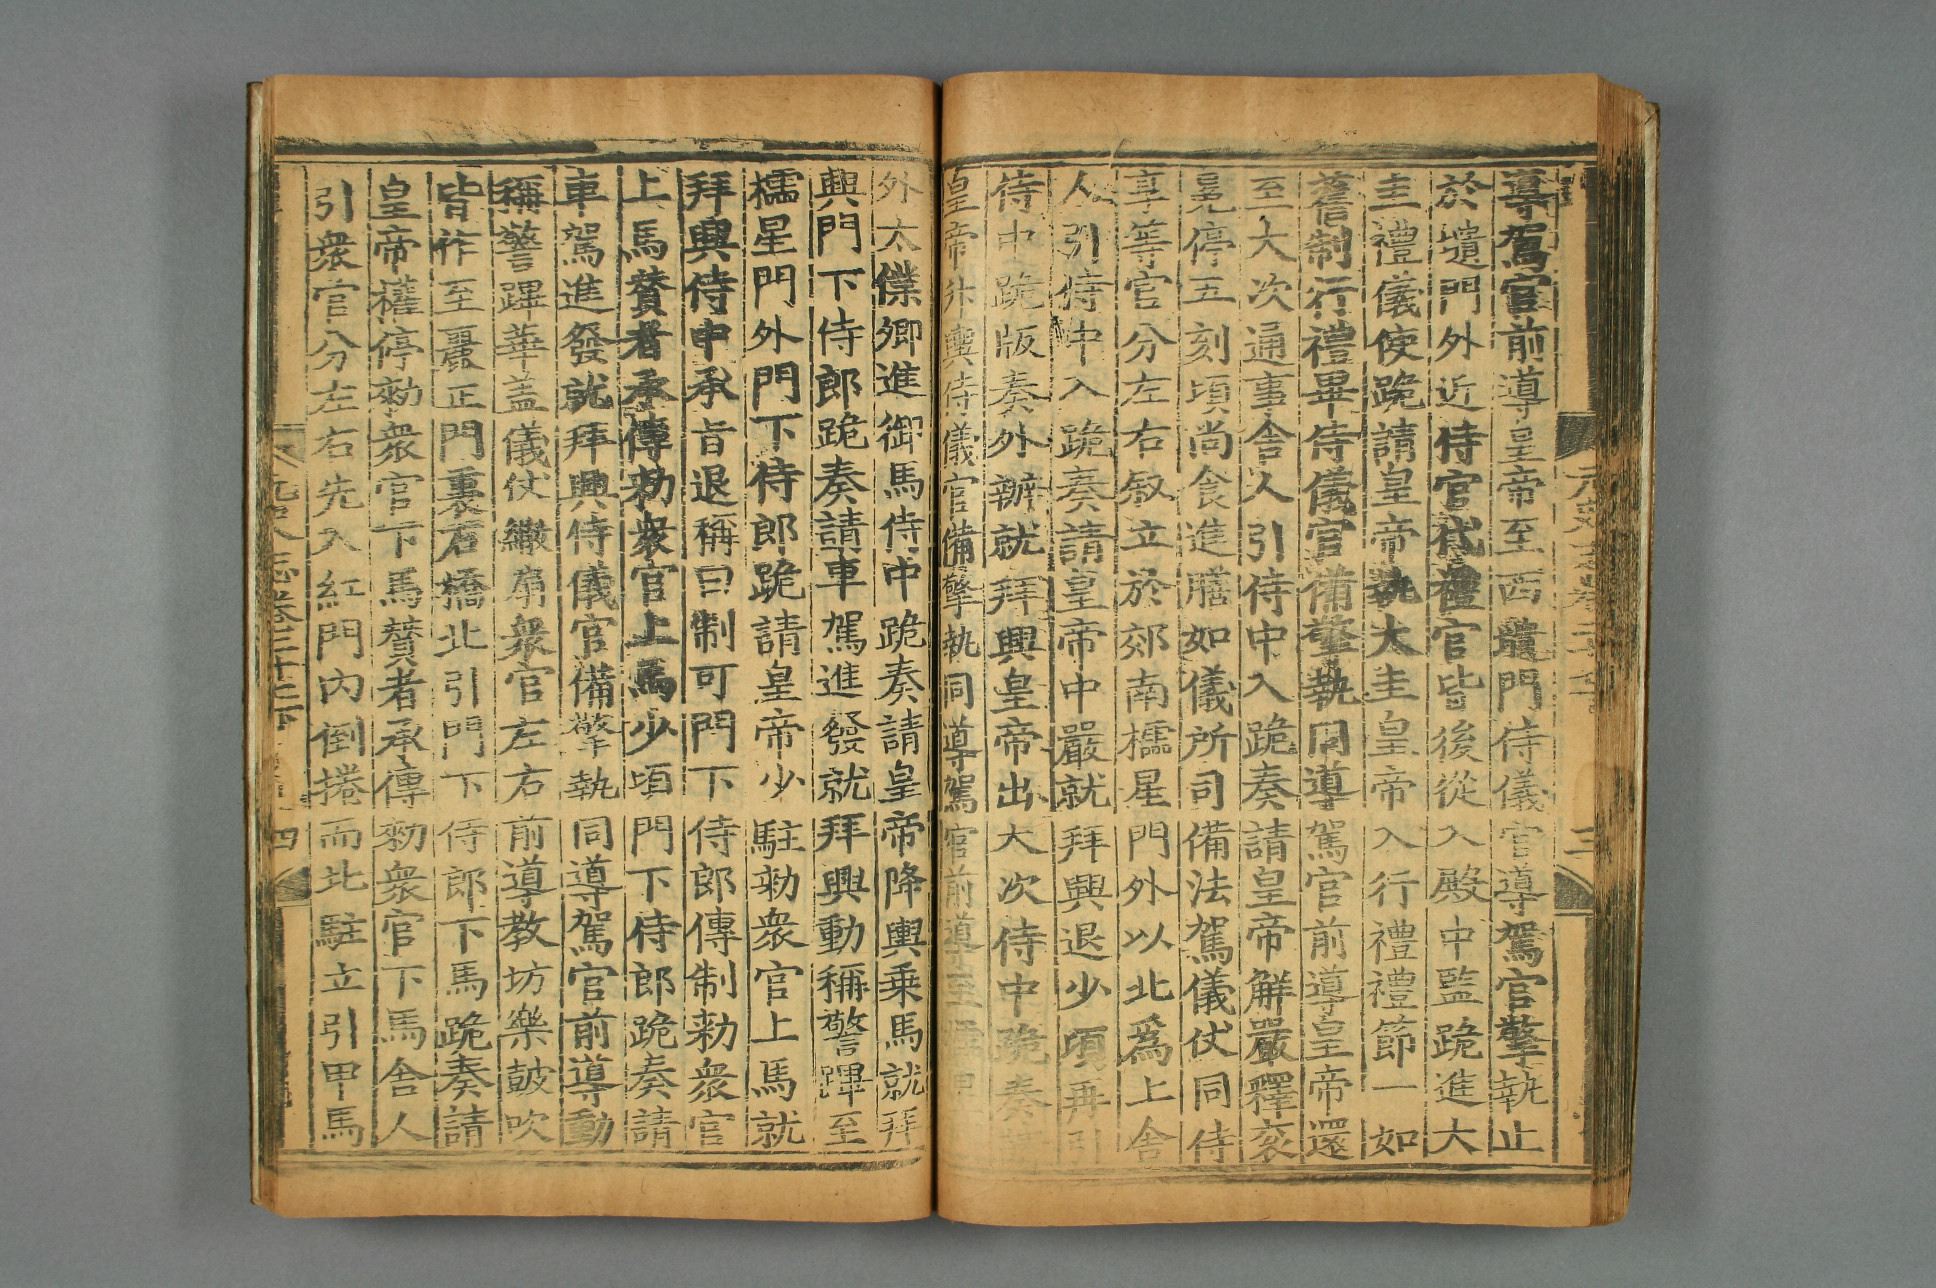 導駕官前導皇帝至西龕門侍儀官導駕官擎執止
於壝門外近侍官代禮官皆後從入殿中監跪進大
圭禮儀使跪請皇帝執大圭皇帝入行禮禮節一如
舊制行禮畢侍儀官備擎執同導駕官前導皇帝還
至大次通事舍人引侍中入跪奏請皇帝解嚴釋衮
冕停五刻頃尚食進膳如儀所司備法駕儀仗同侍
享等官分左右叙立於郊南欞星門外以北爲上舍
人引侍中入跪奏請皇帝中嚴就拜興退少頃再引
侍中跪版奏外辦就拜興皇帝出大次侍中跪奏請
皇帝升輿侍儀官備擎執同導駕官前導至欞星門
外太僕卿進御馬侍中跪奏請皇帝降輿乗馬就拜
興門下侍郎跪奏請車駕進發就拜興動稱警蹕至
欞星門外門下侍郎跪請皇帝少駐勑衆官上馬就
拜興侍中承旨退稱曰制可門下侍郎傳制勑衆官
上馬賛者承傳勑衆官上馬少頃門下侍郎跪奏請
車駕進發就拜興侍儀官備擎執同導駕官前導動
稱警蹕華盖儀仗繖扇衆官左右前導教坊樂鼓吹
皆作至麗正門裏石橋北引門下侍郎下馬跪奏請
皇帝權停勑衆官下馬賛者承傳勑衆官下馬舍人
引衆官分左右先入紅門內倒捲而北駐立引甲馬
志卷二十七下 四